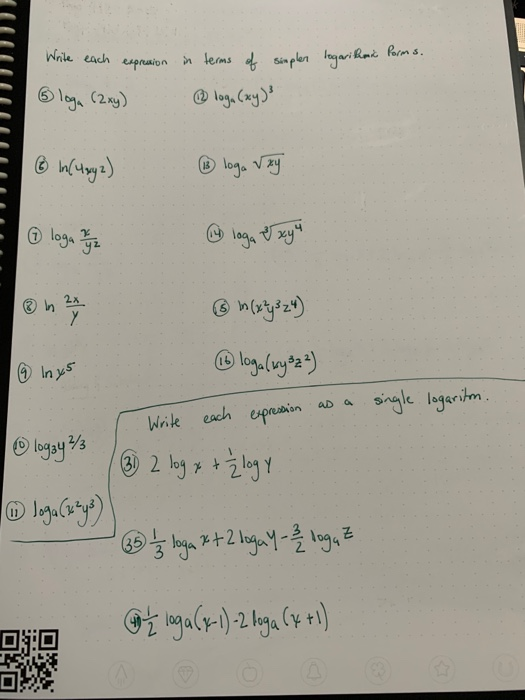 Write each expression in terms of simpler logarithmic forms.
⑤ logₐ (2xy)
⑫ logₐ (xy)³
⑥ ln(4xyz)
⑬ logₐ √xy
⑦ logₐ x/yz
⑭ logₐ ∛xy⁴
⑧ ln 2x/y
⑮ ln(x²y³z⁴)
⑨ ln x⁵
⑯ logₐ(xy³z²)
⑩ log₃y^2/3
⑪ logₐ(x²y³)
Write each expression as a single logaritm.
㉛ 2 log x + 1/2 log y
㉟ 1/3 logₐ x + 2 logₐ y - 3/2 logₐ z
1/2 logₐ(x-1) - 2 logₐ (x+1)